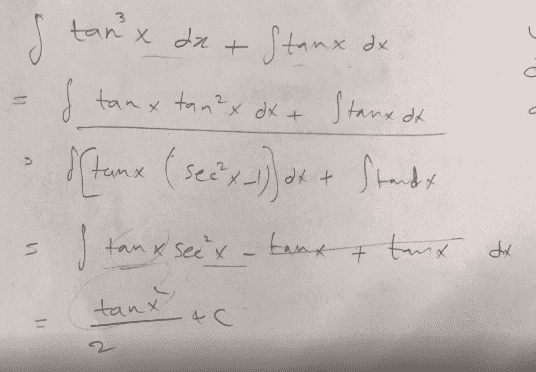 ∫ tan³x dx + ∫tanx dx
= ∫ tanx tan²x dx + ∫tanx dx
= ∫[tanx (sec²x-1)] dx + ∫tanx dx
= ∫ tanx sec²x - tanx + tanx dx
= tanx² / 2 + C